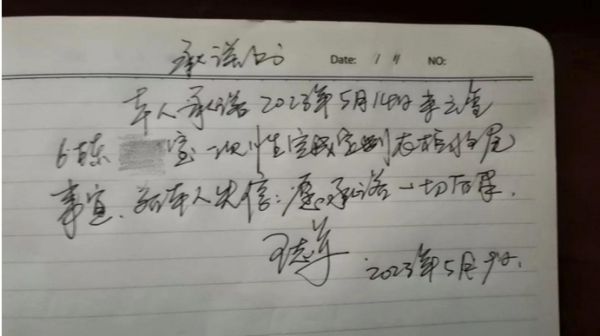 承诺书
Date: / / NO:
本人承诺2023年5月14日
6栋 室一次性完成定制衣柜收尾
事宜.如本人失信:愿承诺一切后果.
2023年5月9日.